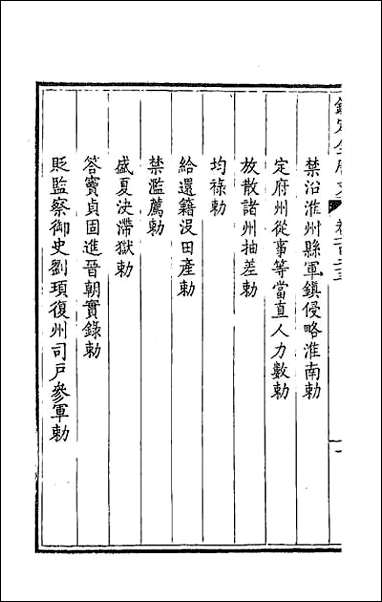 欽定全唐文 卷一百二十三
禁沿淮州縣軍鎮侵略淮南勅
定府州從事等當直人力數勅
放散諸州抽差勅
均祿勅
給還籍沒田產勅
禁濫薦勅
盛夏決滯獄勅
答竇貞固進晉朝實錄勅
貶監察御史劉頊復州司戶參軍勅